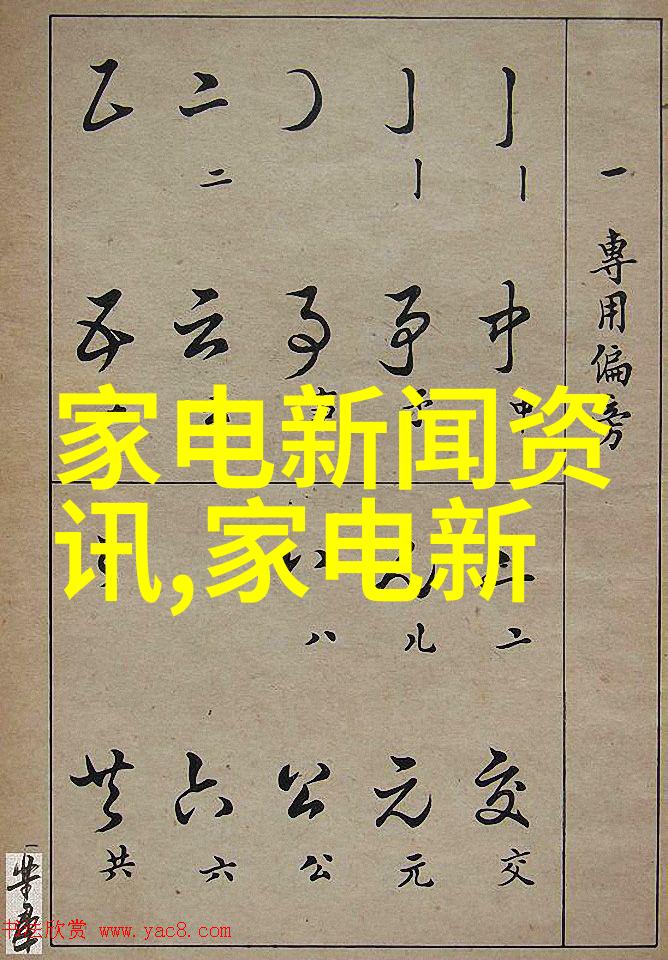 一 專用偏旁
丨 丨 二
中 争 事 云 五
中
家电新闻资
讯,家电新
二 儿 八
交 元 公 六 共
交 元 公 六 共
书法欣赏 www.yac8.com